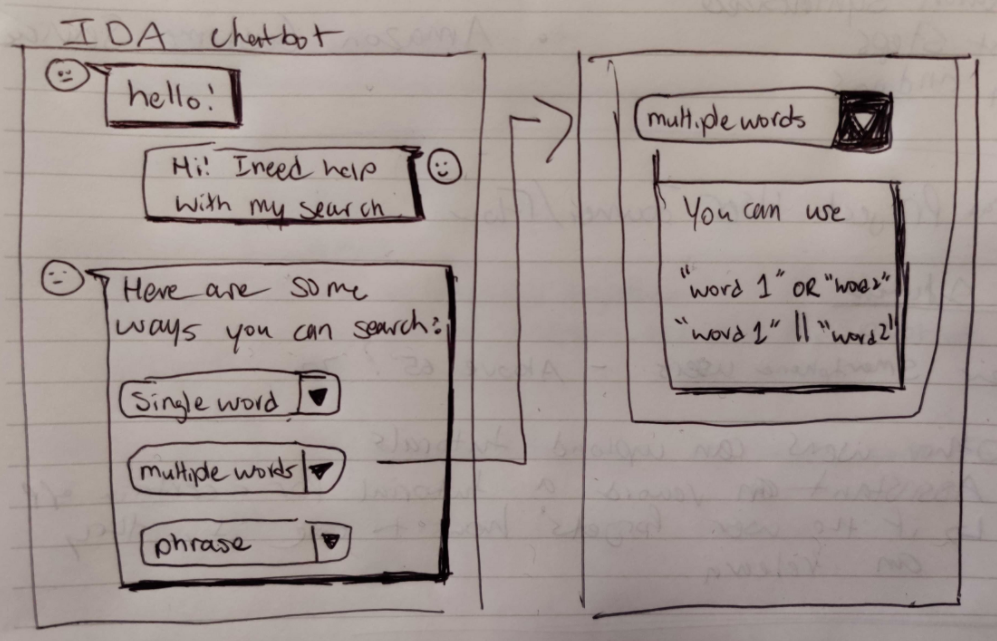 IDA chatbot
hello!
Hi! I need help
with my search
Here are some
ways you can search:
Single word
multiple words
phrase
multiple words
You can use
"word 1" OR "word2"
"word 1" || "word2"